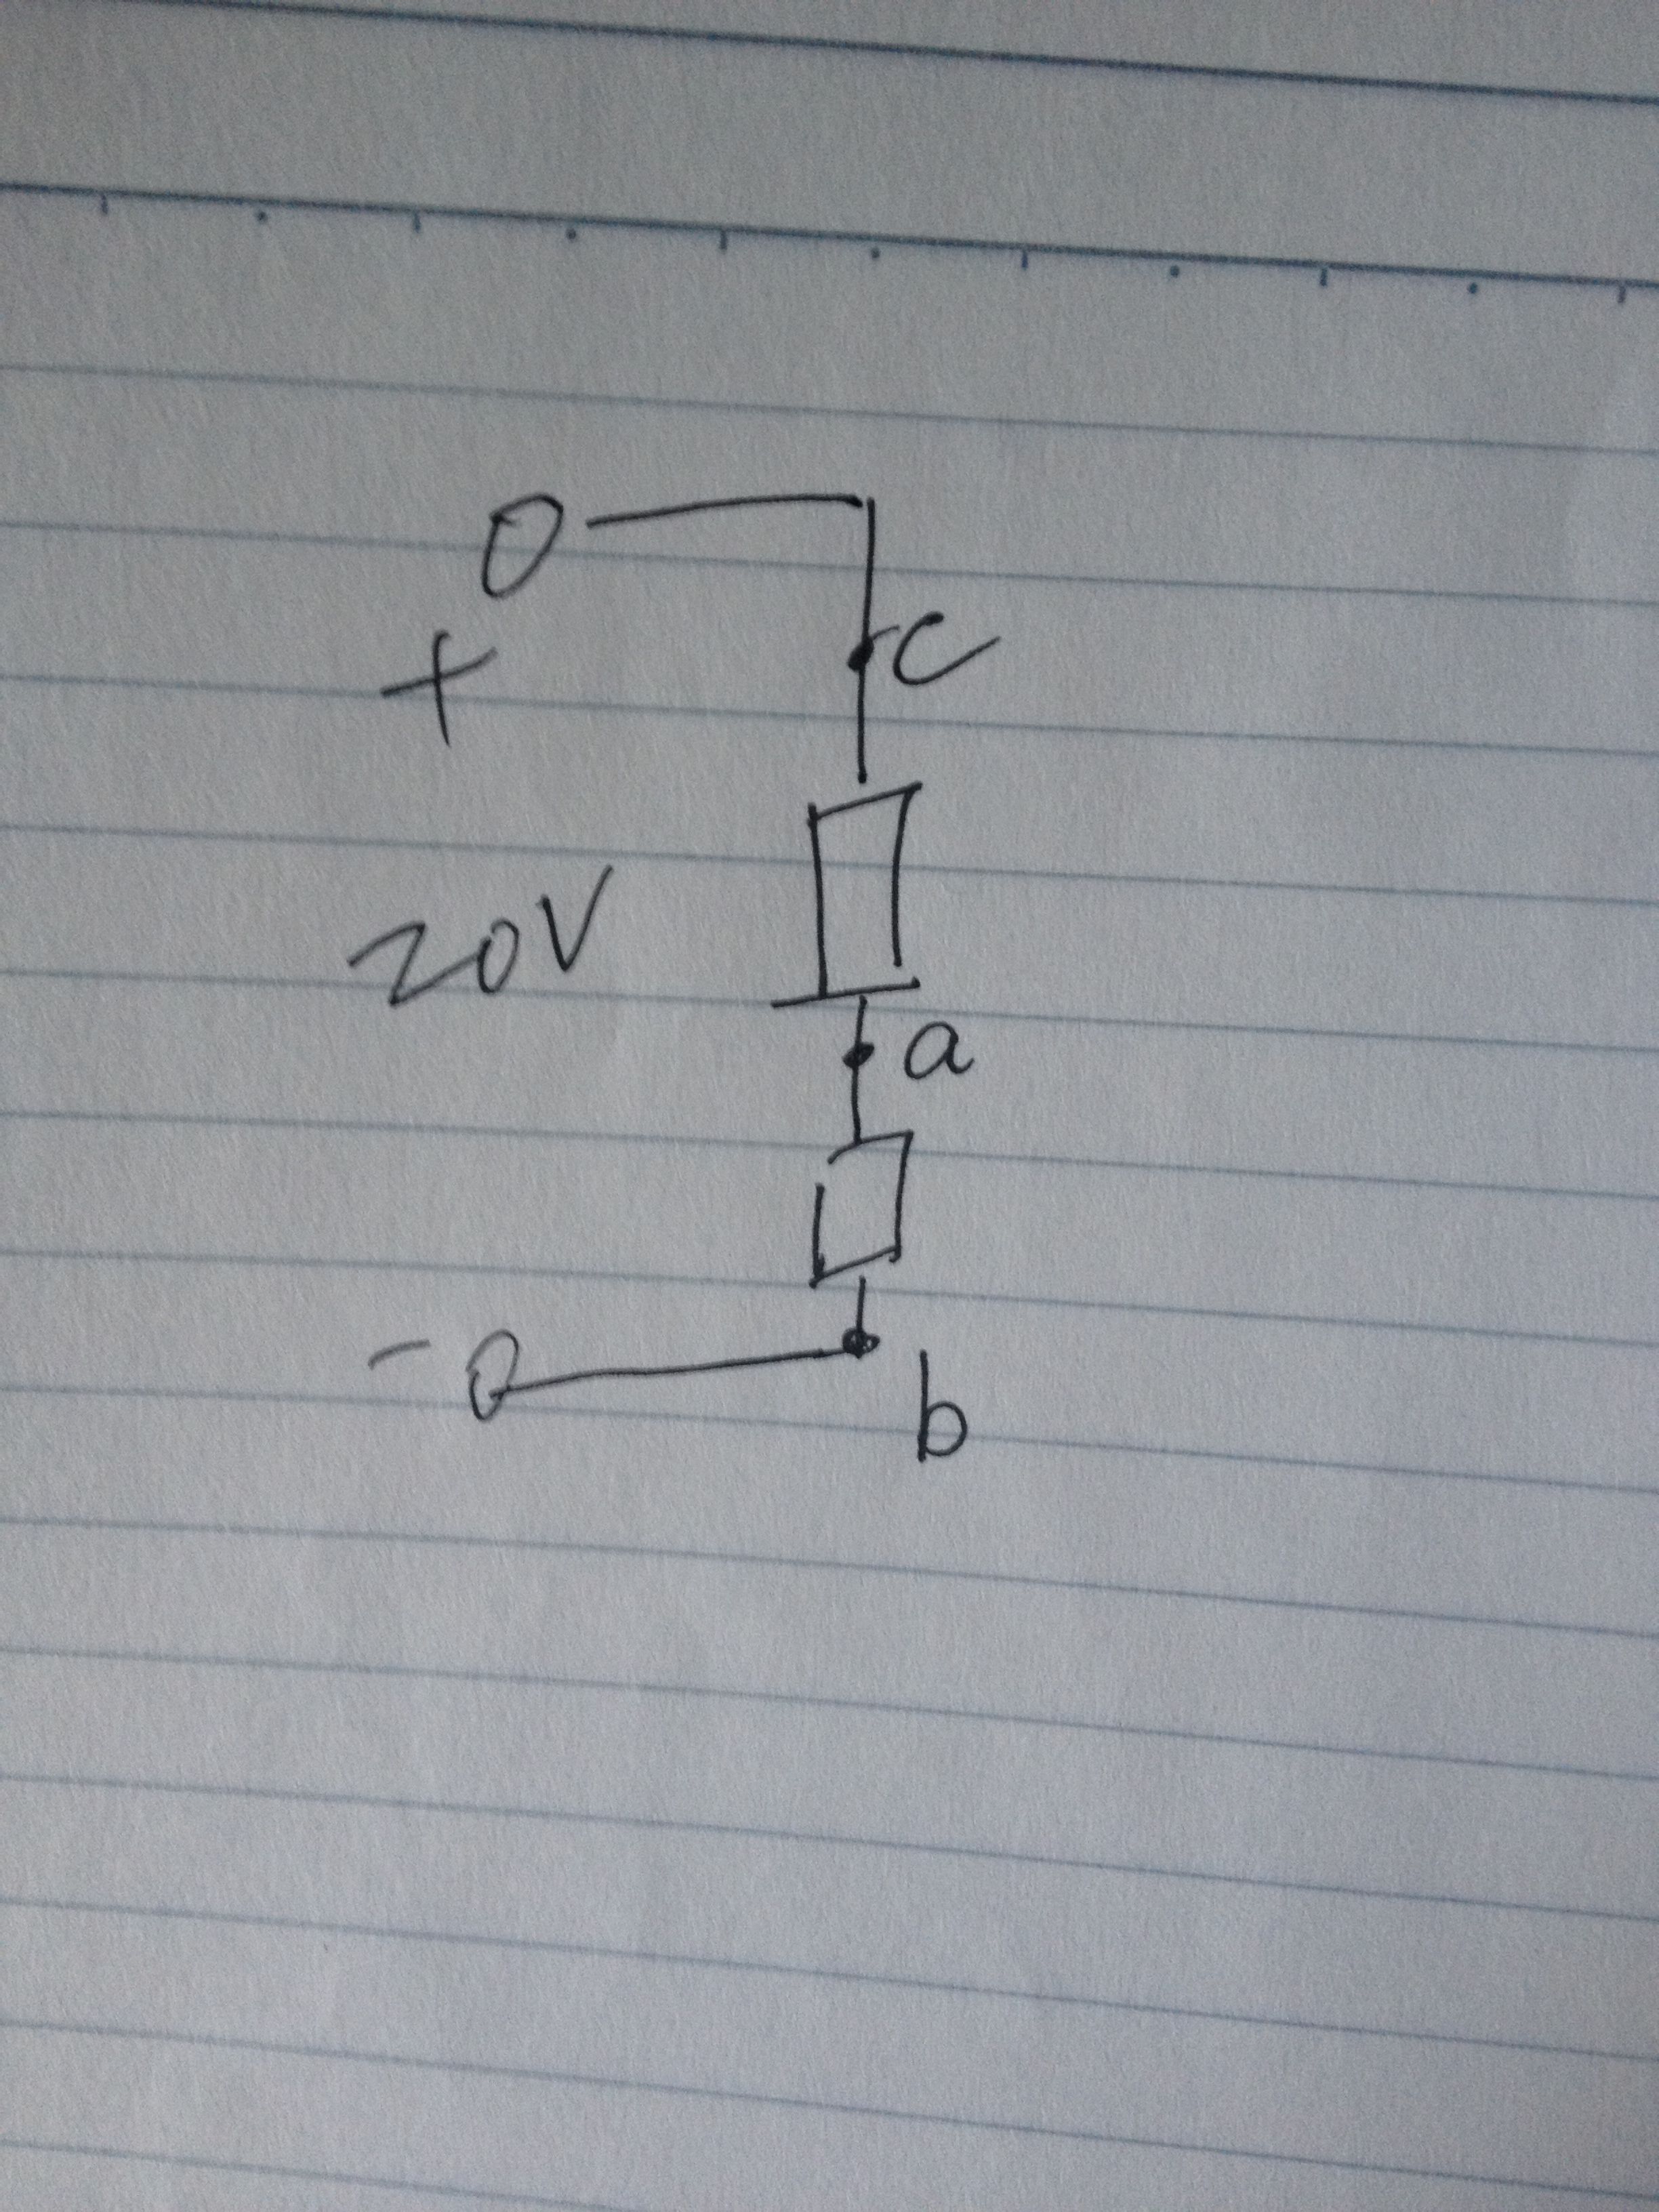 +
c
20V
a
-
b